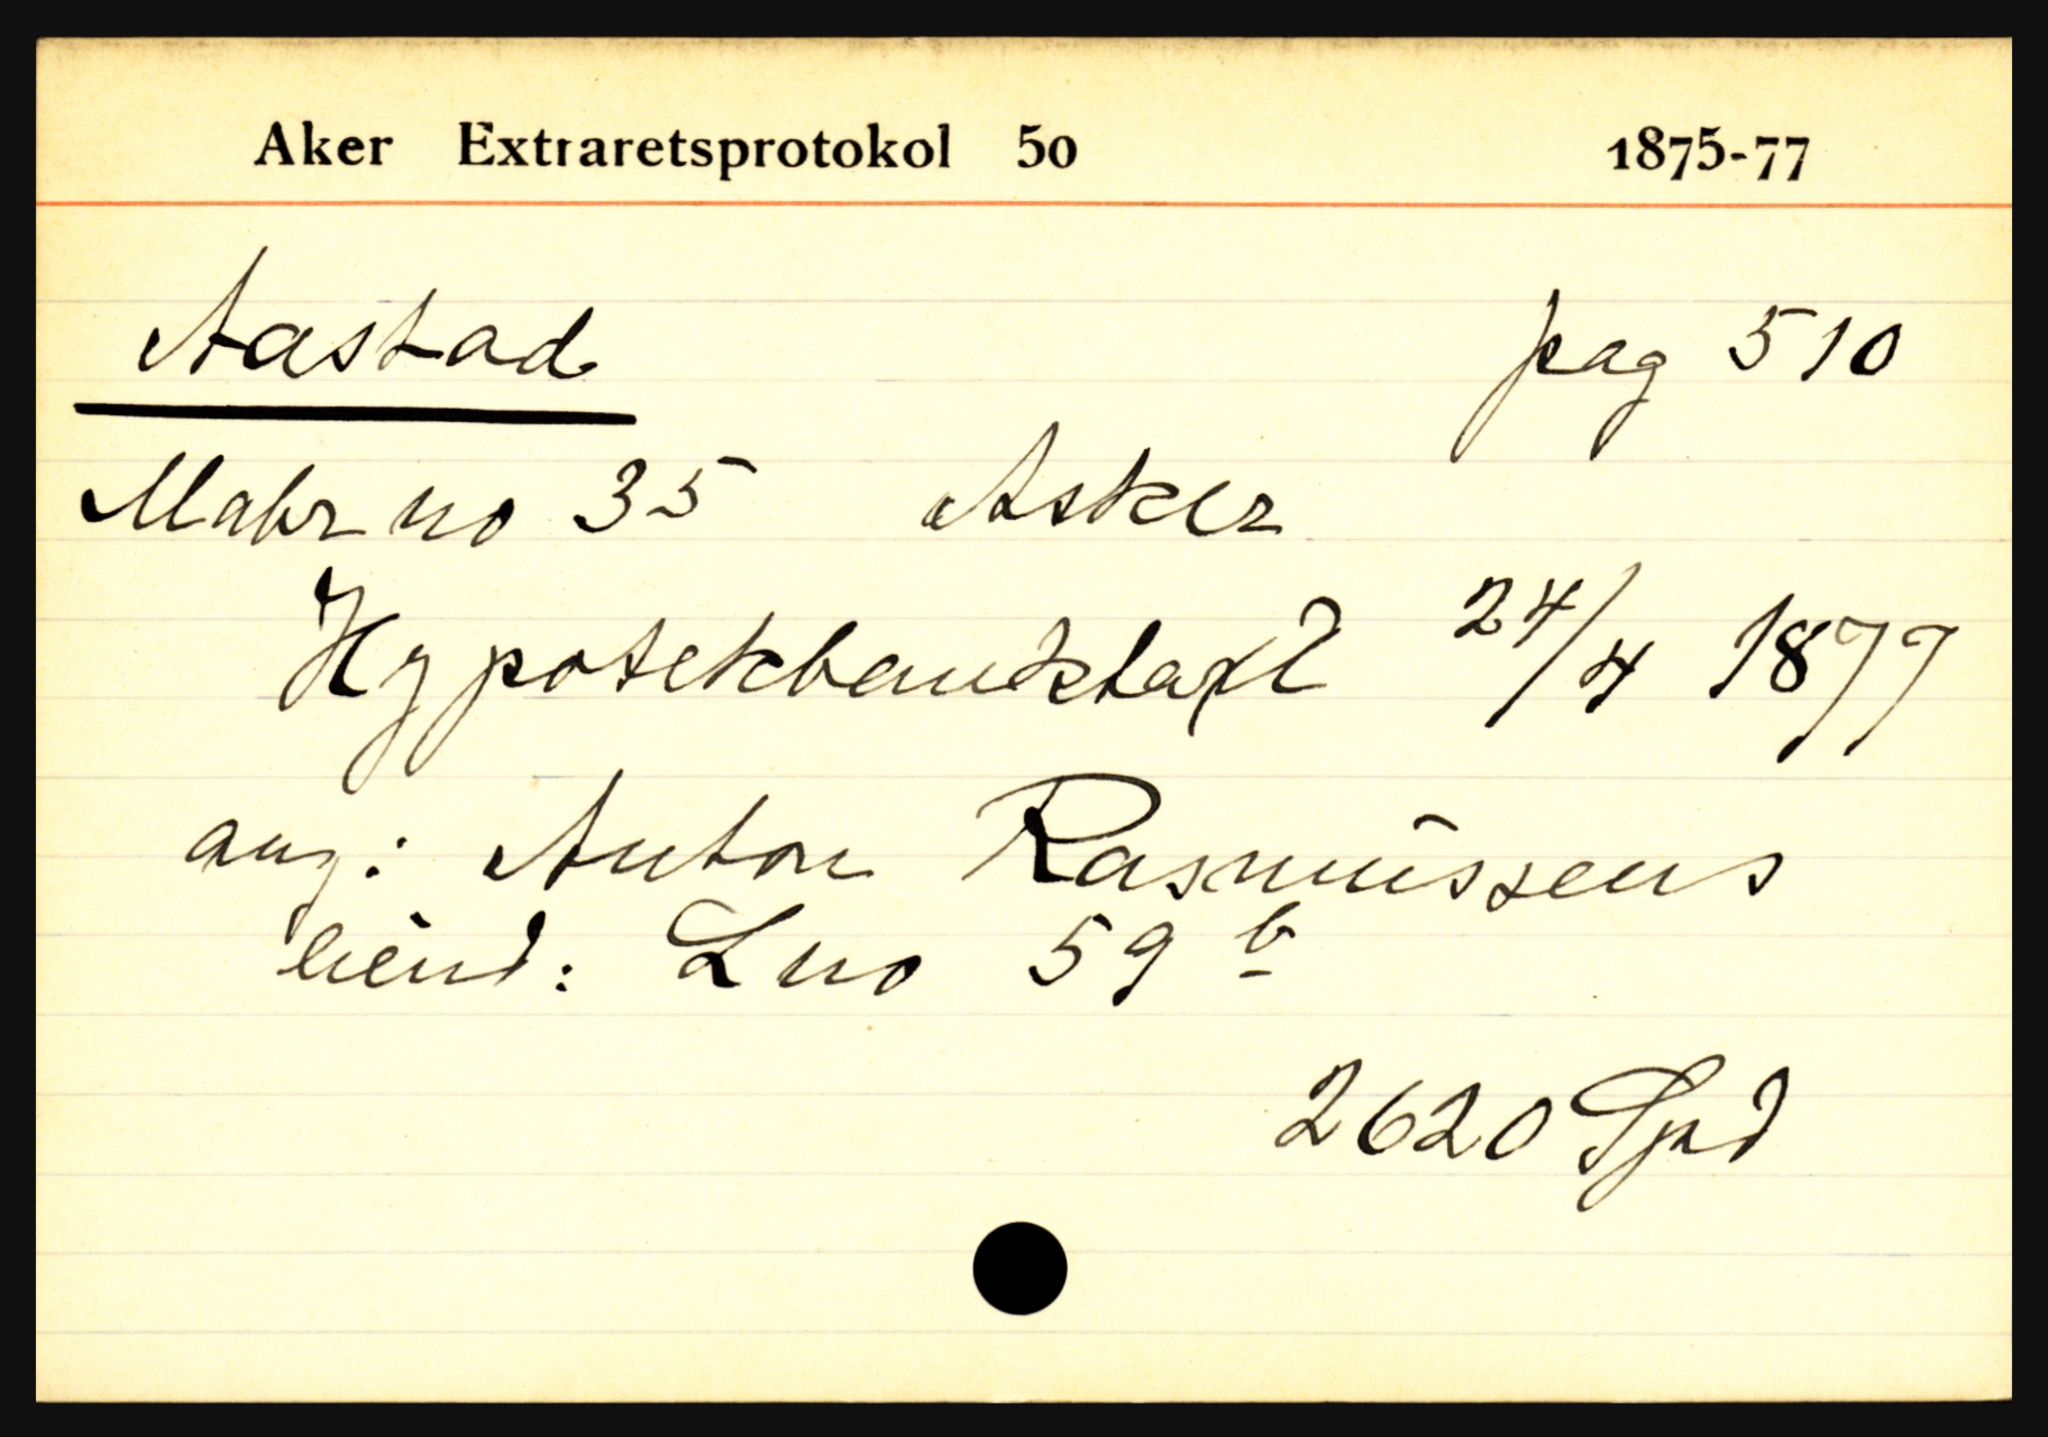 Aker Extraretsprotokol 50 1875-77
Aastad pag 510
Matr no 35 Asker
Hypotekbanktaxt 24/4 1877
ang: Anton Rasmussens
eiend: L no 59 b
2620 Spd